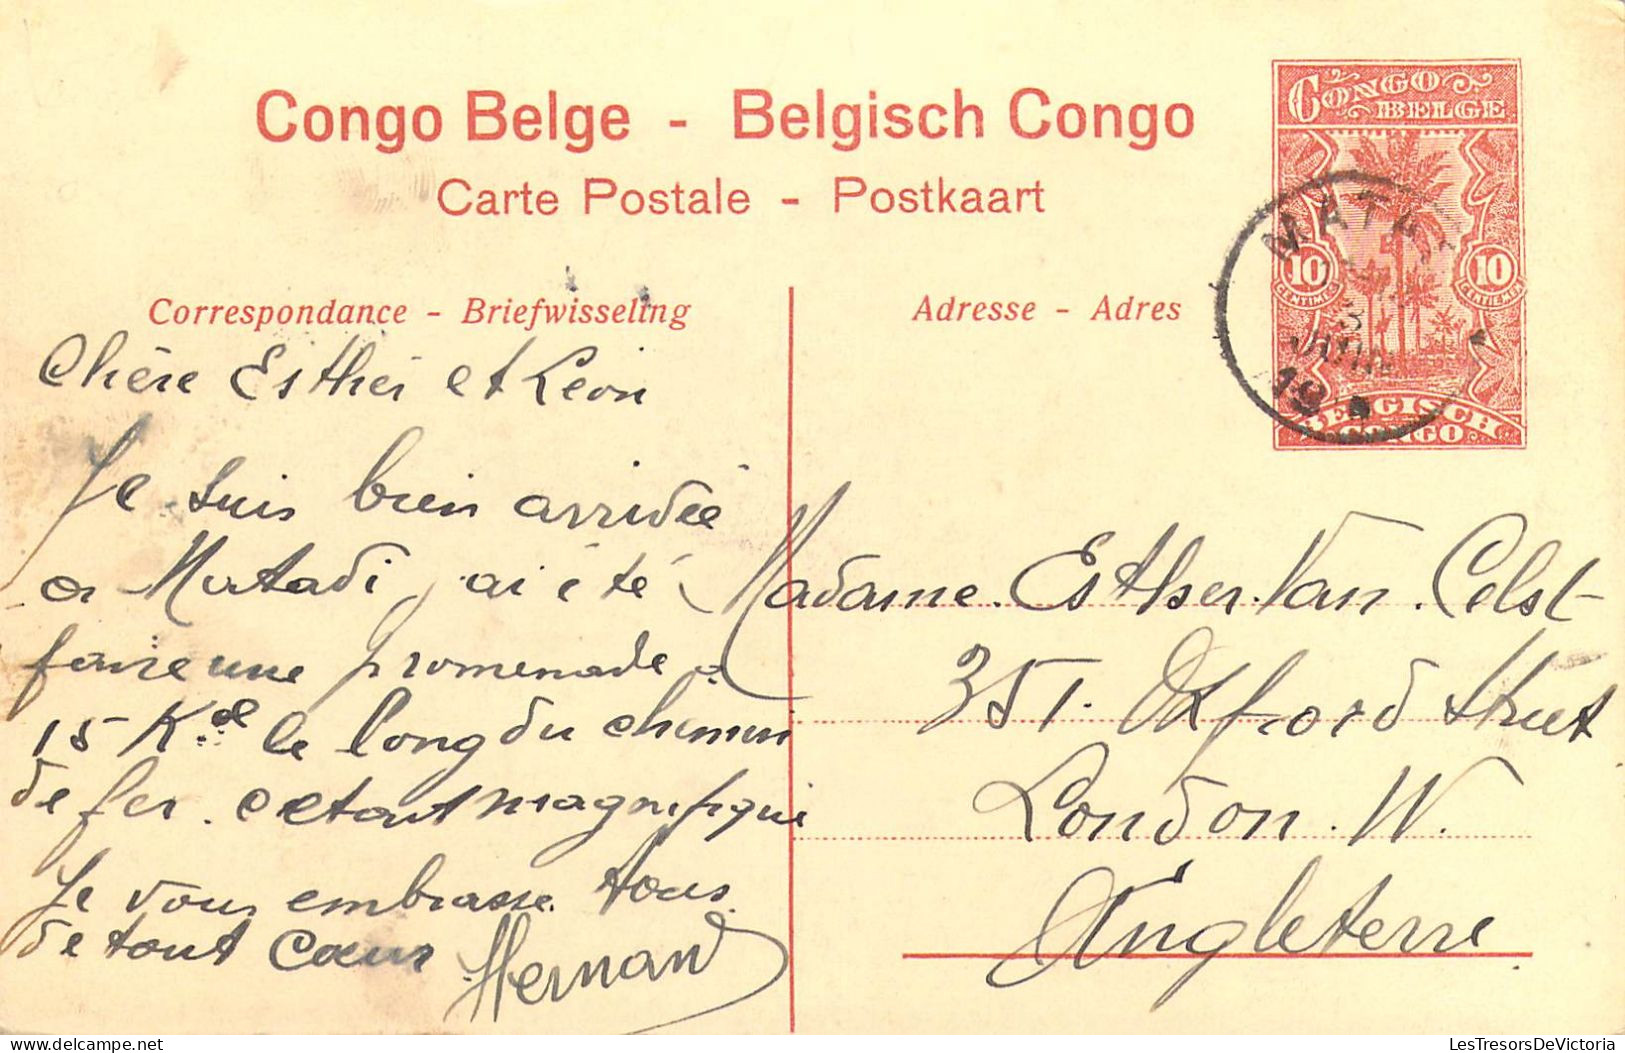 Congo Belge - Belgisch Congo
Carte Postale - Postkaart
CONGO
BELGE
10
CENTIMES
10
CENTIEMEN
BELGISCH
CONGO
MATA
3
JUIN
19
Correspondance - Briefwisseling
Adresse - Adres
Chère Esther et Léon
Je suis bien arrivée
a Matadi j'ai été
faire une promenade a
15 K. le long du chemin
de fer. c etait magnifique
Je vous embrasse tous
de tout cœur
Hernand
Madame Esther Van Celst
351. Oxford Street
London. W.
Angleterre
delcampe.net
LesTresorsDeVictoria